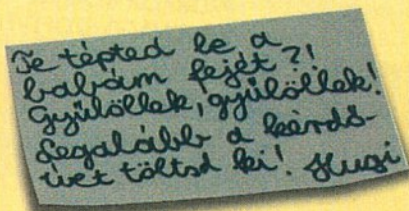 Te tépted le a
babám fejét?!
Gyűlöllek, gyűlöllek!
Legalább a kérdő-
ívet töltsd ki! Hugi